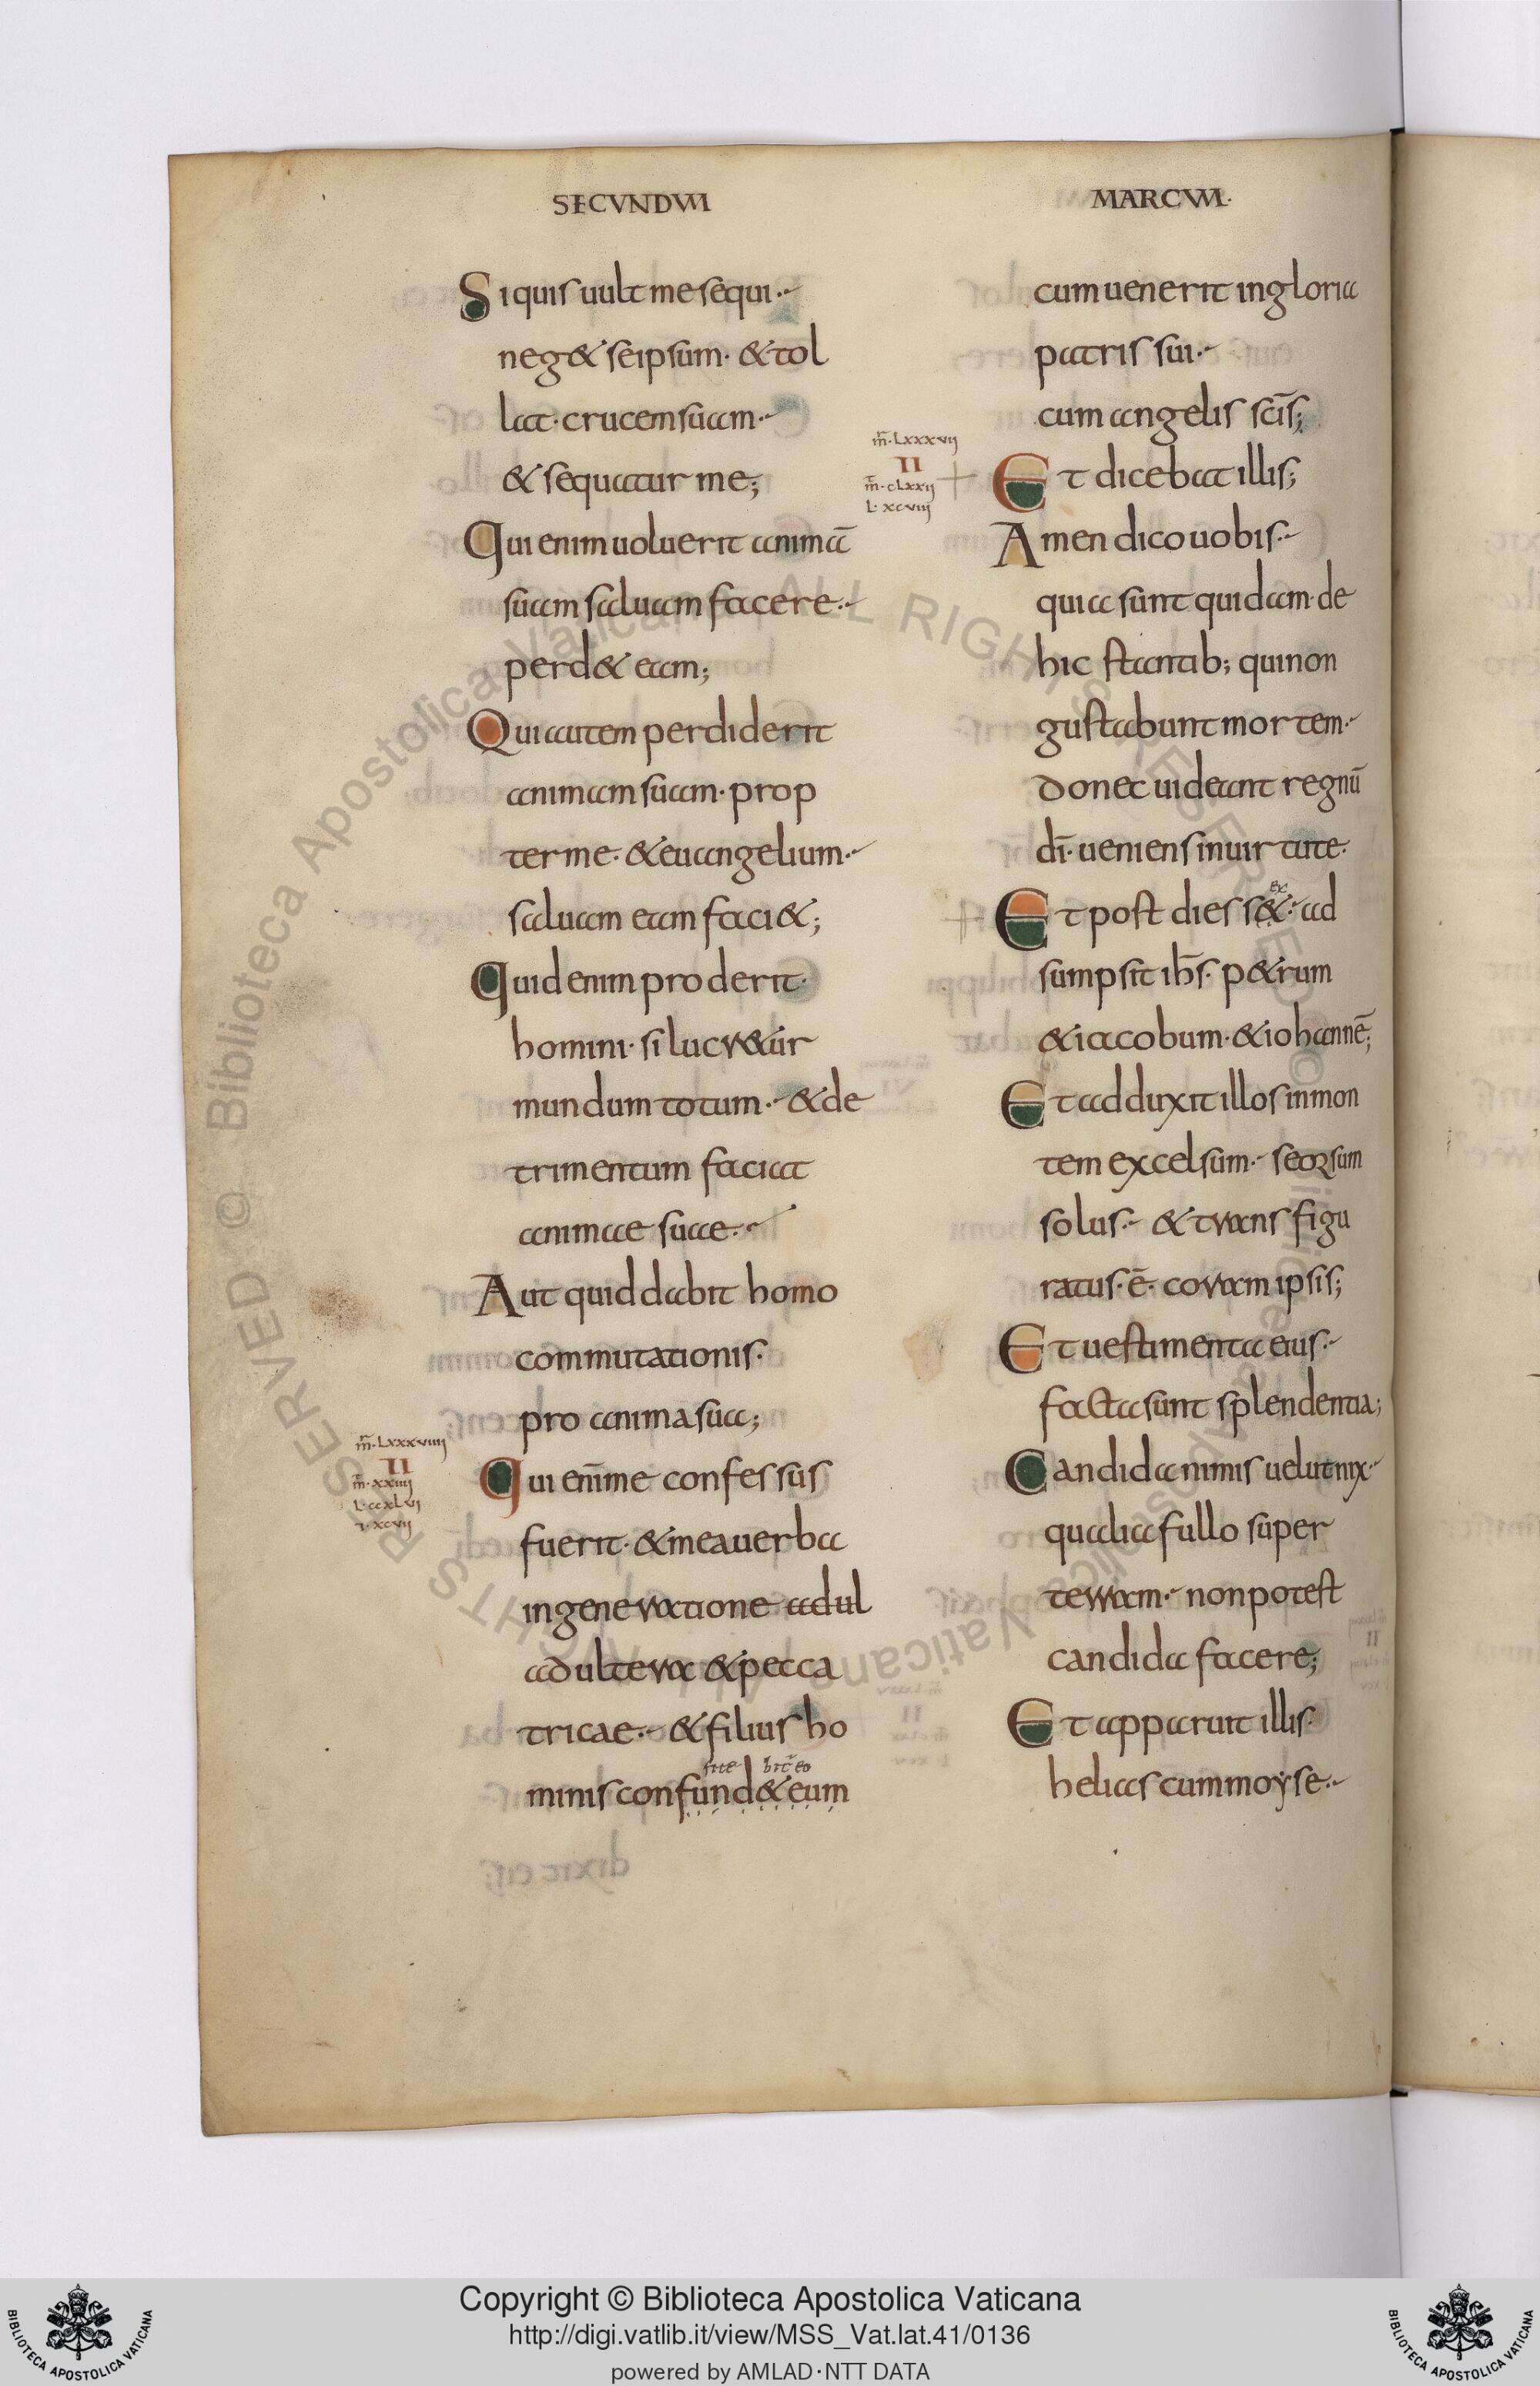 SECVNDVM
Si quis uult me sequi·
neg& se ipsum· & tol
lat· crucem suam·
& sequatur me;
Qui enim uoluerit animā
suam saluam facere·
perd& eam;
Qui autem perdiderit
animam suam· prop
ter me· & euangelium·
saluam eam faci&;
Quid enim proderit·
homini· si lucr&ur
mundum totum· & de
trimentum faciat
animae suae·
Aut quid dabit homo
commutationis·
pro anima sua;
m̄·Lxxxviiii
II
m̄·xxiiii
L·ccxLvi
xcvii
Qui enīme confessus
fuerit· & mea uerba
in generatione adul
adultera & pecca
tricae· & filius ho
bit̄ eo
minis confund& eum
MARCVM·
cum uenerit in gloria
patris sui·
cum angelis scīs;
m̄·Lxxxvii
II
m̄·cLxxii
L·xcviii
Et dicebat illis;
Amen dico uobis·
quia sunt quidam· de
hic stantib; qui non
gustabunt mortem·
donec uideant regnū
dī· ueniens in uirtute·
ex
Et post dies s&· ad
sumpsit ih̄s· p&rum
& iacobum· & iohannē;
Et adduxit illos in mon
tem excelsum· seorsum
solus· & transfigu
ratus· ē· coram ipsis;
Et uestimenta eius·
facta sunt splendentia;
Candida nimis uelut nix·
qualia fullo super
terram· non potest
candida facere;
Et apparuit illis·
helias cum moyse·
Copyright © Biblioteca Apostolica Vaticana
http://digi.vatlib.it/view/MSS_Vat.lat.41/0136
powered by AMLAD·NTT DATA
BIBLIOTECA APOSTOLICA VATICANA
BIBLIOTECA APOSTOLICA VATICANA